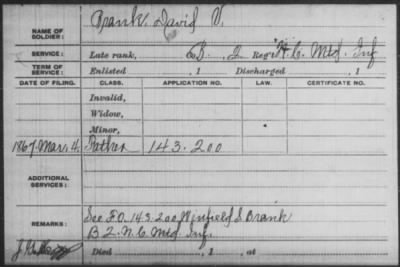 NAME OF SOLDIER: Brank, David V.
SERVICE: Late rank, Co B, 2 Reg't N. C. Mtd. Inf
TERM OF SERVICE: Enlisted , 1 Discharged , 1
DATE OF FILING. CLASS. APPLICATION NO. LAW. CERTIFICATE NO.
Invalid,
Widow,
Minor,
1867 Mar, 4 Father 143.200
ADDITIONAL SERVICES:
REMARKS: See F.O. 143.200 Winfield S. Brank
B 2. N. C. Mtd. Inf.
Died , 1 , at